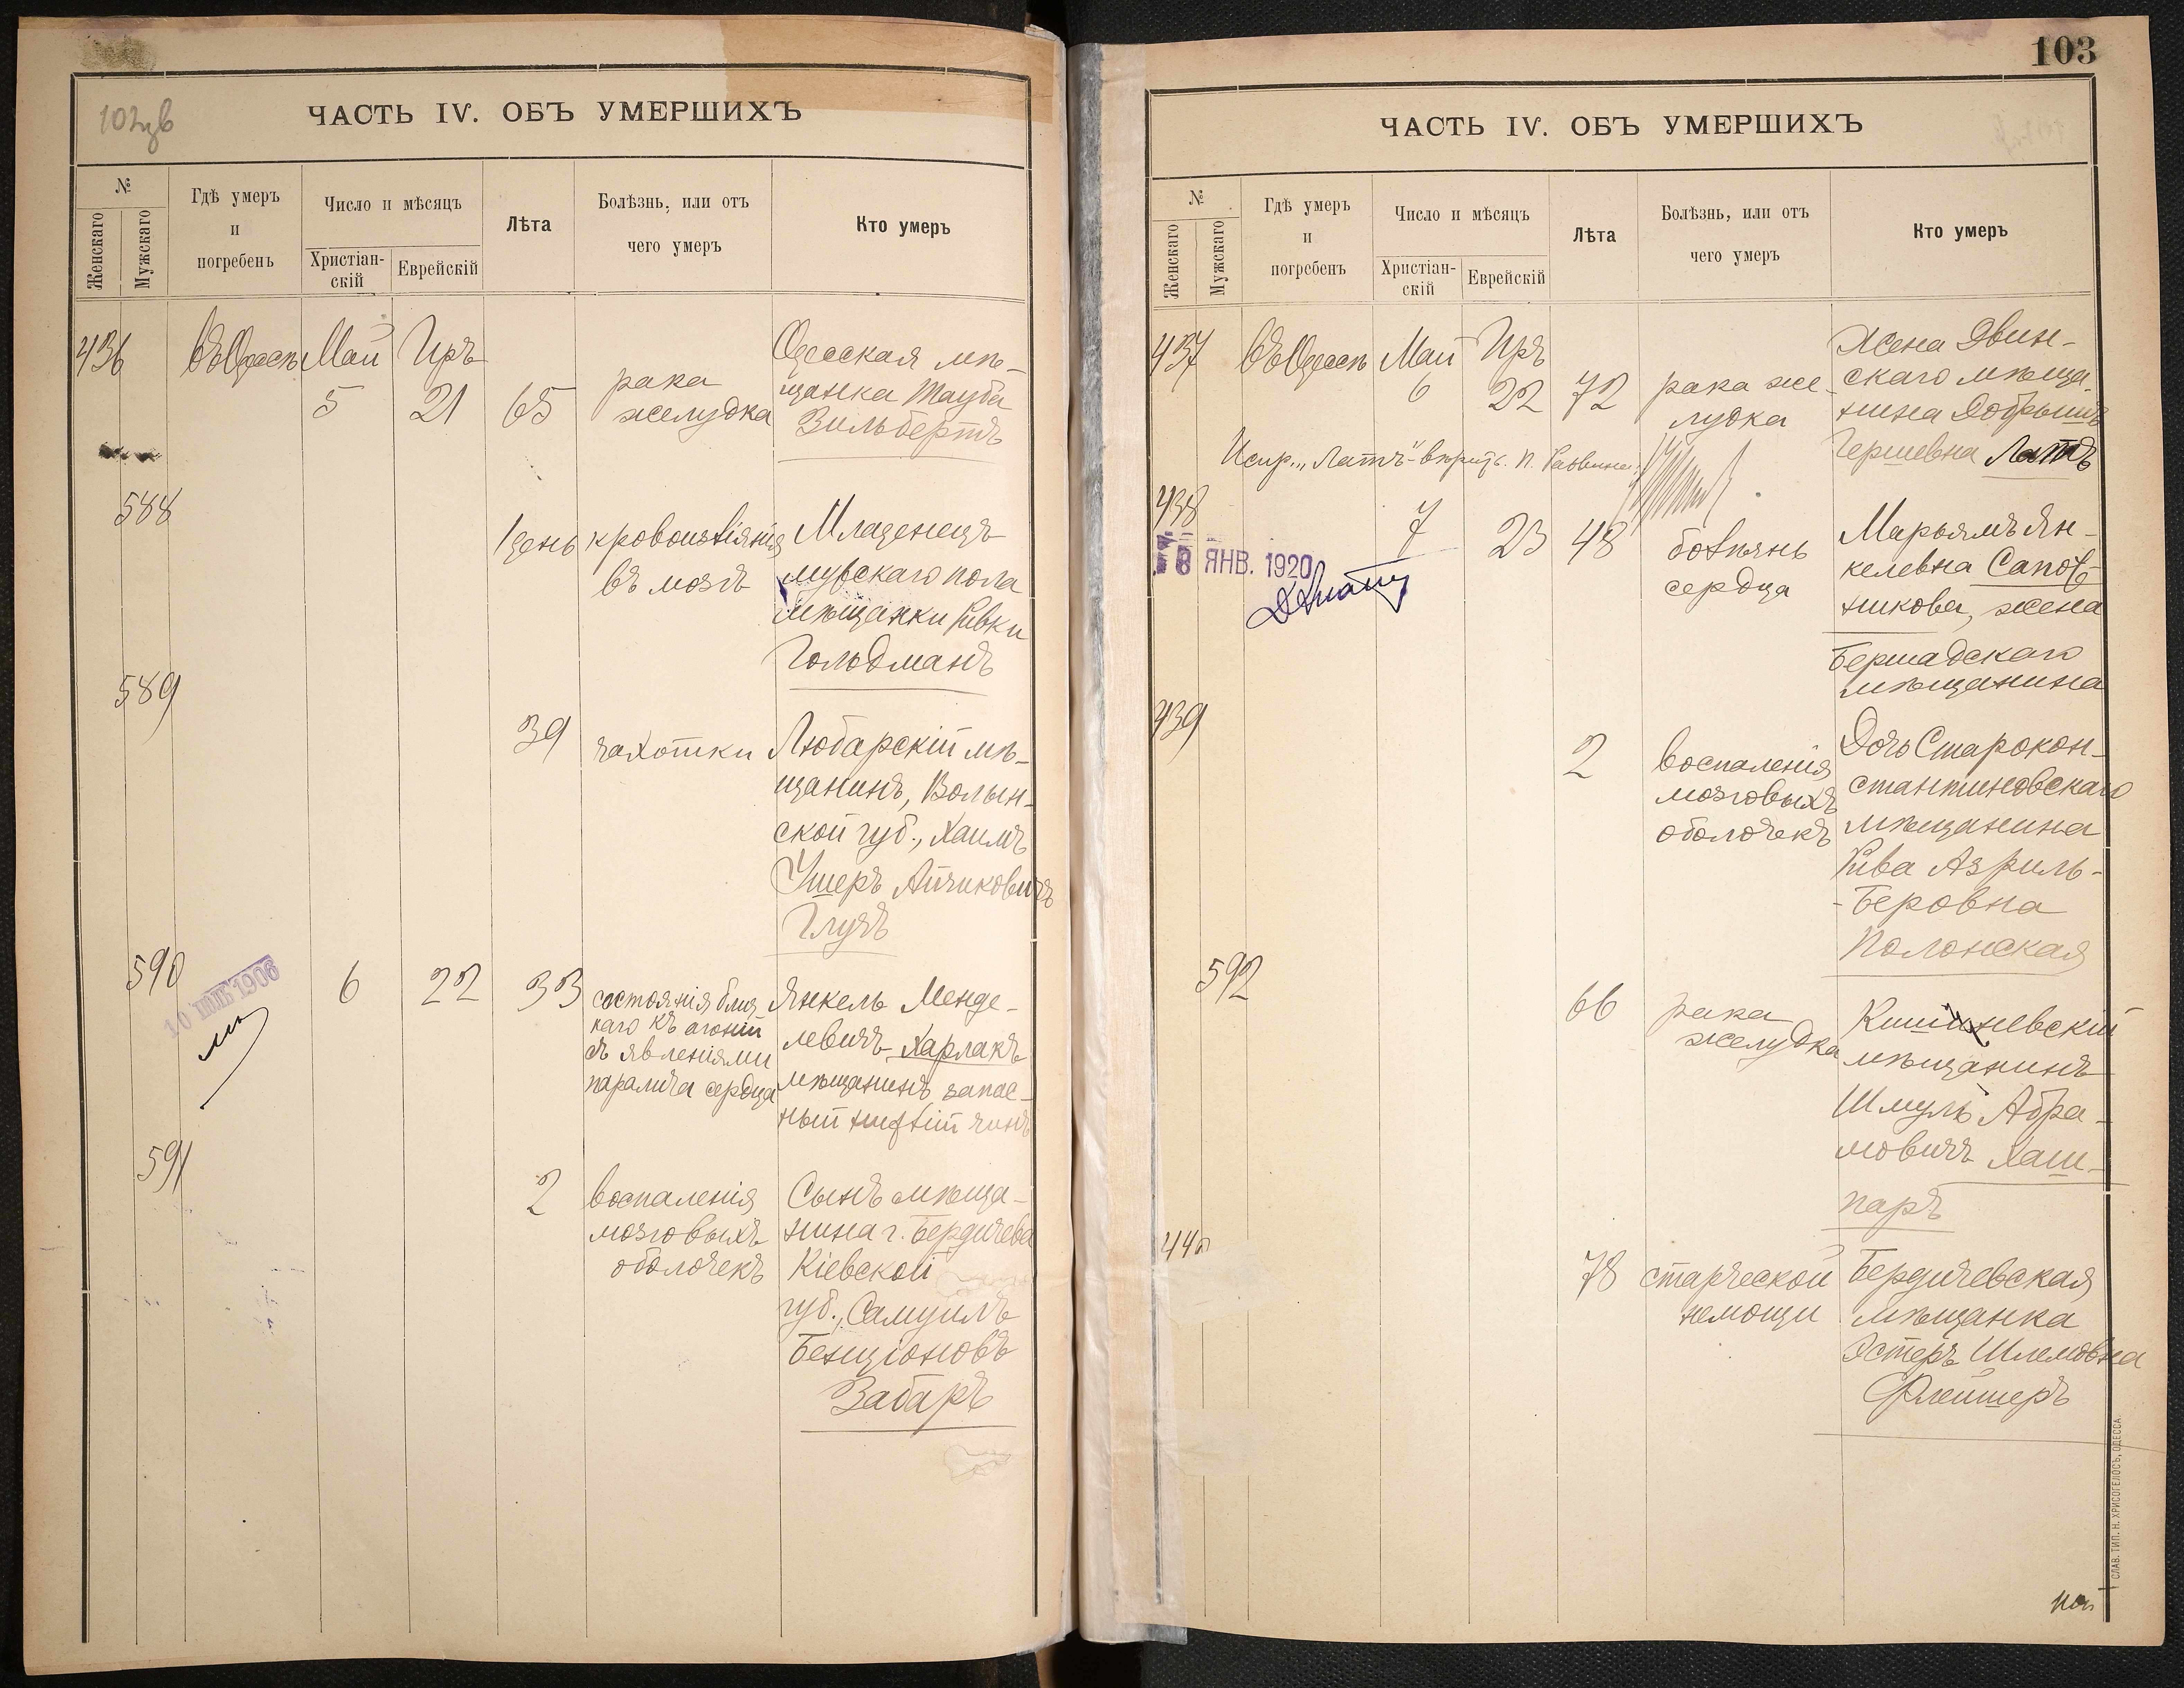 ЧАСТЬ IV. ОБЪ УМЕРШИХЪ
№
Женскаго
Мужскаго
Гдѣ умеръ
и
погребенъ
Число и мѣсяцъ
Христіан-
скій
Еврейскій
Лѣта
Болѣзнь, или отъ
чего умеръ
Кто умеръ
436
въ Одессѣ
Май
5
Иръ
21
65
рака
желудка
Одесская мѣ-
щанка Тауба
Зильбертъ
588
1 день
кровоизліянія
въ мозгъ
Младенецъ
мужскаго пола
мѣщанки Ривки
Гольдманъ
589
39
чахотки
Любарскій мѣ-
щанинъ, Волын-
ской губ., Хаимъ
Ушеръ Айчиковичъ
Глузъ
590
10 1906
6
22
33
состоянія близ
каго къ агоніи
съ явленіями
паралича сердца
Янкель Менде-
левичъ Харлакъ
мѣщанинъ запас-
ный нижній чинъ
591
2
воспаленія
мозговыхъ
оболочекъ
Сынъ мѣща-
нина г. Бердичева
Кіевской
губ., Самуилъ
Бенціоновъ
Забаръ
103
ЧАСТЬ IV. ОБЪ УМЕРШИХЪ
№
Женскаго
Мужскаго
Гдѣ умеръ
и
погребенъ
Число и мѣсяцъ
Христіан-
скій
Еврейскій
Лѣта
Болѣзнь, или отъ
чего умеръ
Кто умеръ
437
въ Одессѣ
Май
6
Иръ
22
72
рака же-
лудка
Жена Двин-
скаго мѣща-
нина Добрышъ
Гершевна Латъ
Испр. "Латъ" вѣрить. П. Раввина
438
8 ЯНВ. 1920
7
23
48
болѣзнь
сердца
Марьямъ Ян-
келевна Сапож-
никова, жена
Бершадскаго
мѣщанина
439
2
воспаленія
мозговыхъ
оболочекъ
Дочь Старокон-
стантиновскаго
мѣщанина
Рива Азриль-
-Беровна
Полонская
592
66
рака
желудка
Кишиневскій
мѣщанинъ
Шмуль Абра-
мовичъ Хаш-
паръ
440
78
старческой
немощи
Бердичевская
мѣщанка
Эстеръ Шлемовна
Флейшеръ
СЛАВ. ТИП. Н. ХРИСОГЕЛОСЪ, ОДЕССА.